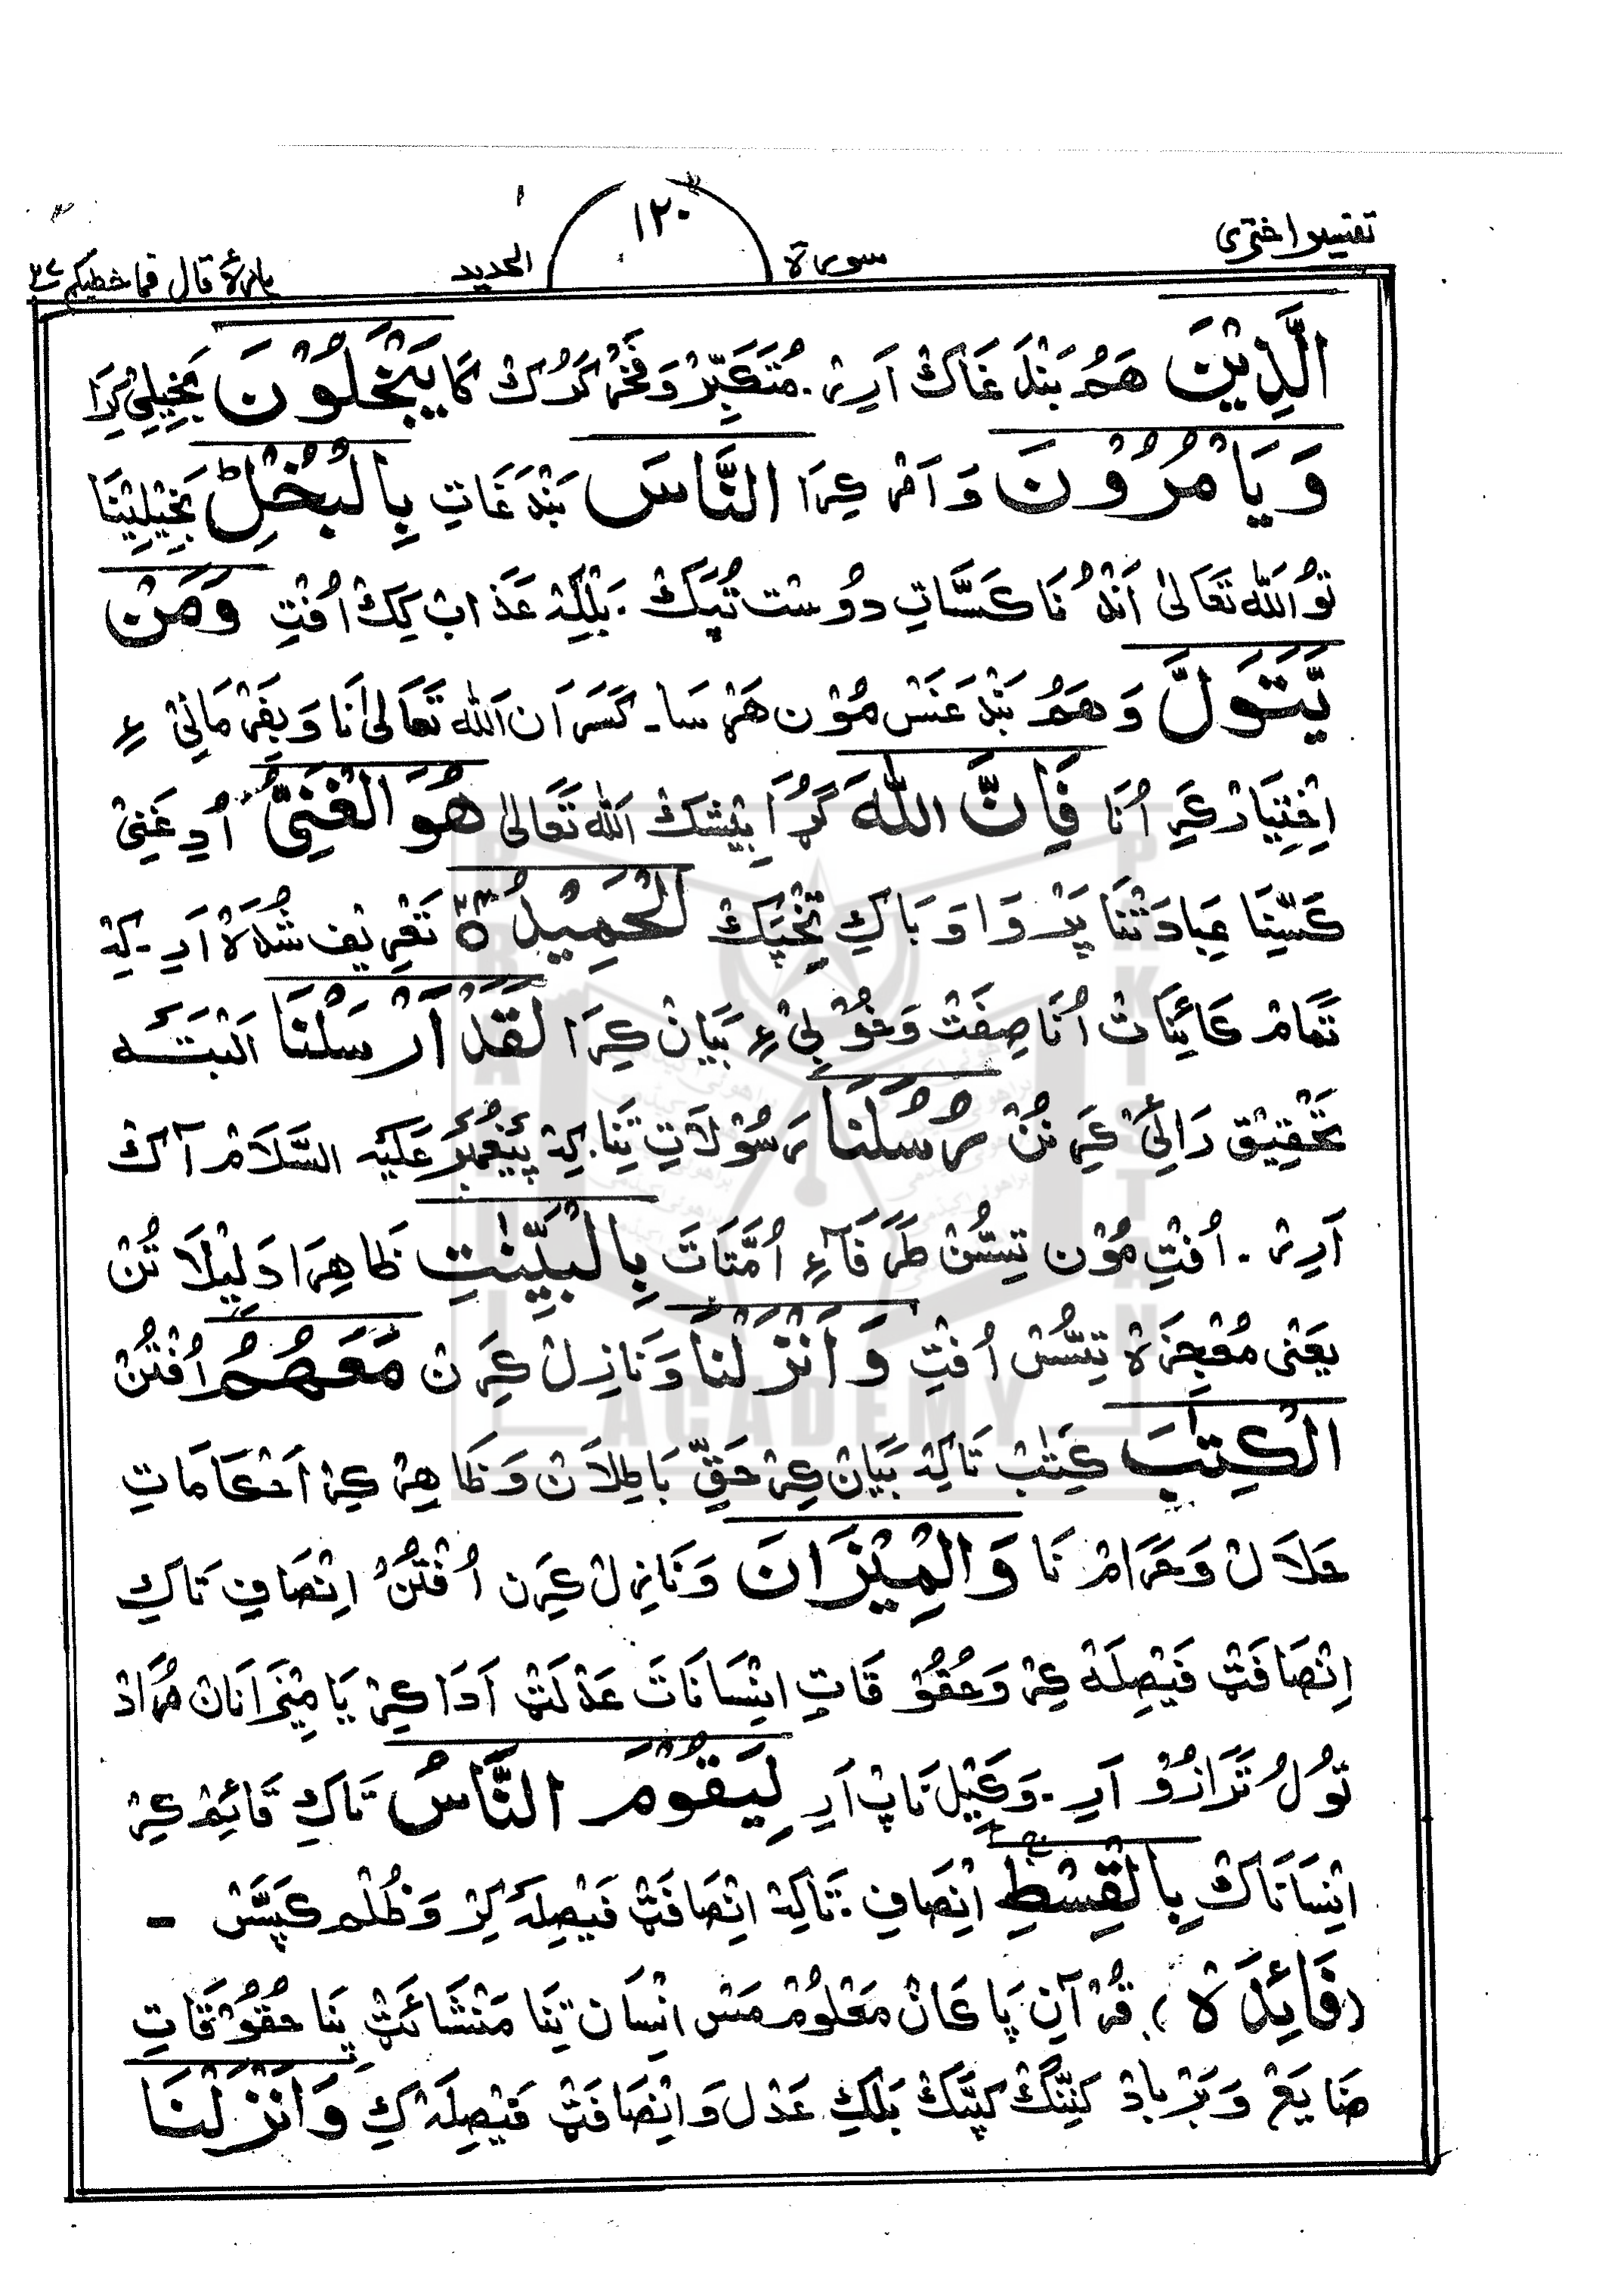 تفسیر اختری
سورة ١٢٠ الحدید
پارہ قال فما خطبکم ٢٧
الَّذِیْنَ هَمُ بَنْدَغَاکْ اَرِرْ۔ مُتَکَبِّرْ وَ فَخْر کَرُکْ کَا یَبْخَلُوْنَ بَخِیْلِیْ کِرَا
وَیَاْمُرُوْنَ وَ اَمْر کِرَا النَّاسَ بَنْدَغَاتِ بِالْبُخْلِ بَخِیْلِیْنَا
تُو اَللّٰه تَعَالیٰ اَنْدُنَا کَسَّاتِ دُوسْت تُپَکْ۔ بَلْکِہْ عَذَابْ کِکْ اُفْتِ وَمَنْ
یَّتَوَلَّ وَ هَمُ بَنْدَغَسْ مُوْن هَرْسَا۔ کَسَرَان اَللّٰه تَعَالیٰ نَا وَ بِفَرْمَانِیْ ءِ
اِخْتِیَارْ کَرِ اُنَا فَاِنَّ اللّٰهَ گُڑَا بِیْشَکْ اَللّٰه تَعَالیٰ هُوَ الْغَنِیُّ اُدِ غَنِیْ
کَسِّنَا عِبَادَتْنَا پَرْوَا وَ بَاکِ تَخْپَکْ لْحَمِیْدُ تَعْرِیْف شُدَہْ اَرِ۔ کِہْ
تَمَامْ کَائِنَاتْ اُنَا صِفَتْ وَ خُوْبِیْ ءِ بَیَانْ کِرَا لَقَدْ اَرْسَلْنَا اَلْبَتَہ
تَحْقِیْق رَاِئیْ کَرِنْ نَنْ رُسُلَنَا رَسُوْلَاتِ تِنَا۔ کِہْ پَیْغَمْبَرْ عَلَیْہِ السَّلَامْ آکْ
اَرِرْ۔ اُفْتِ مُوْن تِسُّنْ طَرَفَآءِ اُمَّتَاتَ بِالْبَیِّنٰتِ ظَاهِرَا دَلِیْلَا تَنْ
یَعْنی مُعْجِزَہْ تِسُّسْ اُفْتِ وَ اَنْزَلْنَا وَ نَازِلْ کَرِنْ مَعَهُمُ اُفْتَنْ
الْکِتٰبَ کِتٰبْ تَاکِہْ بَیَانْ کِرْ حَقِّ بَاطِلَانْ وَ ظَاهِرْ کِرْ اَحْکَامَاتِ
حَلَالْ وَ حَرَامْ نَا وَالْمِیْزَانَ وَ نَازِلْ کَرِن اُفْتَنْ اِنْصَافِ تَاکِ
اِنْصَافَٹْ فَیْصِلَہْ کِرْ وَ حُقُوْقَاتِ اِنْسَانَاتَ عَدْلَٹْ اَدَا کِرْ یَا مِیْزَانَانْ مُرَادْ
تُولُ تَرَازُوْ اَرِ۔ وَ کَیْلِ نَاپْ اَرِ لِیَقُوْمَ النَّاسُ تَاکِ قَائِمْ کِرْ
اِنْسَانَاکْ بِالْقِسْطِ اِنْصَافِ۔ تَاکِہْ اِنْصَافَٹْ فَیْصِلَہ کِرْ وَ ظُلْم کَپَسْ ۔
(فَائِدَہْ) قُرْآنِ پَاکَانْ مَعْلُوْم مَسْ اِنْسَان تِنَا مَنْشَائَٹْ تِنَا حُقُوْقَاتِ
ضَایَعْ وَ بَرْبَادْ کَنِنْگْ کَپَکْ بَلْکِ عَدْل وَ اِنْصَافَٹْ فَیْصِلَہْ کِ وَ اَنْزَلْنَا
BRAHUI ACADEMY PAKISTAN